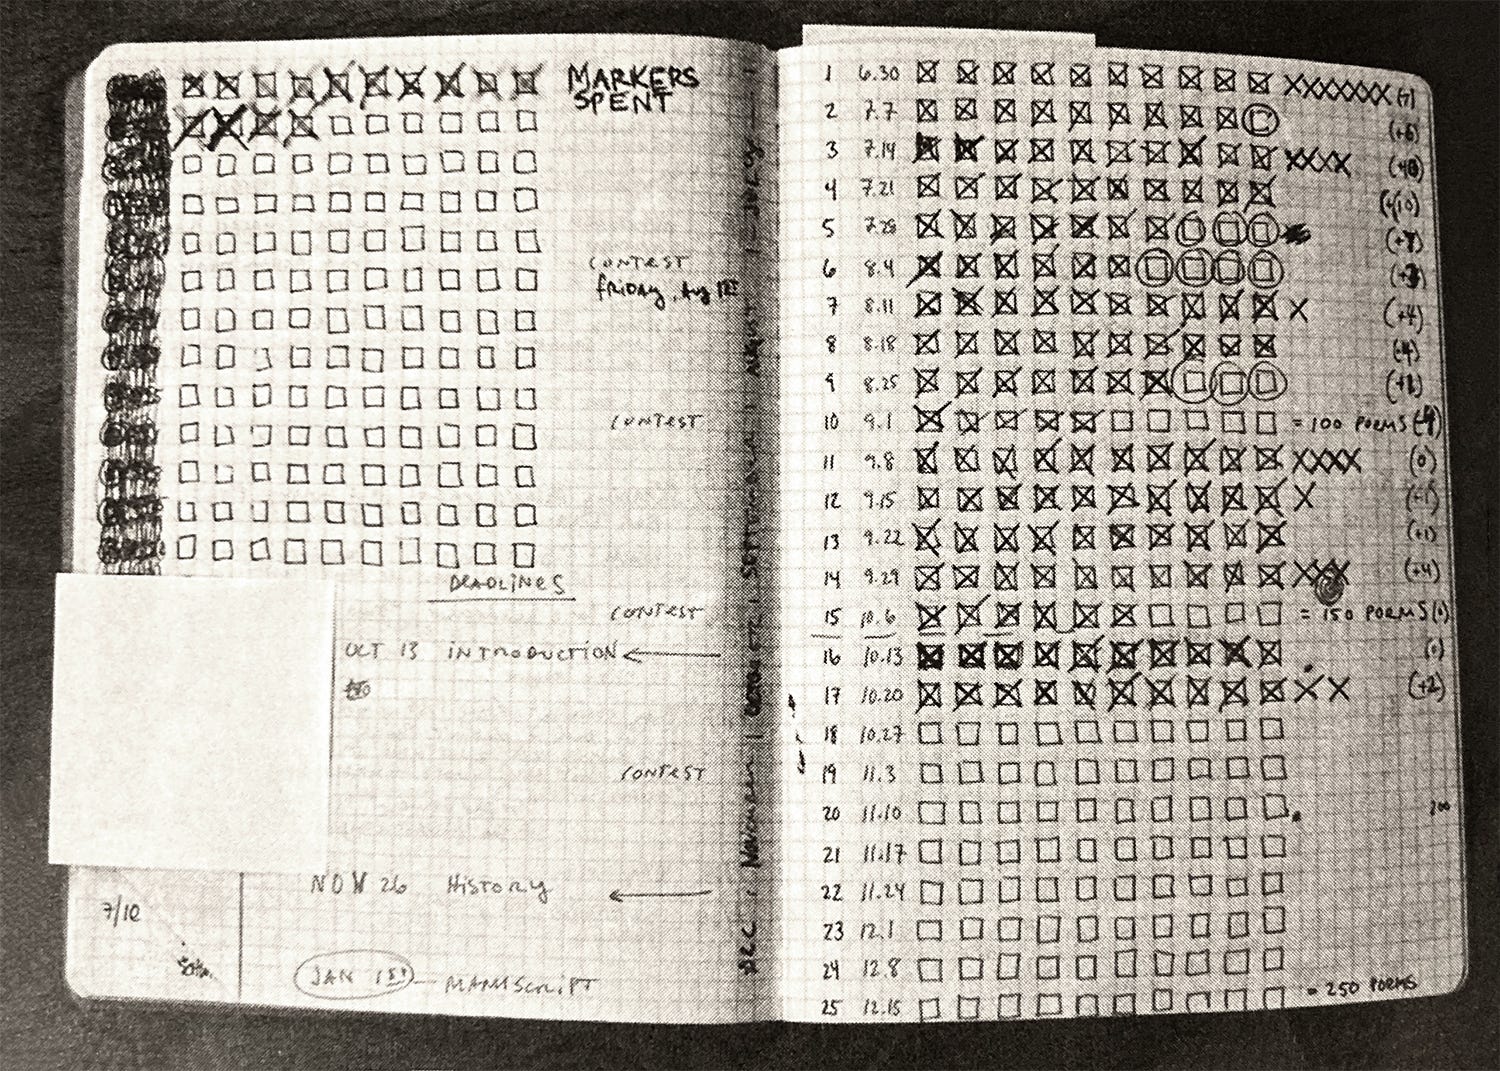 MARKERS
SPENT
CONTEST
FRIDAY, Aug 1ST
CONTEST
DEADLINES
CONTEST
OCT 13 INTRODUCTION
CONTEST
NOV 26 HISTORY
7/10
JAN 1ST — MANUSCRIPT
DEC. | NOVEMBER | OCTOBER | SEPTEMBER | AUGUST | JULY
1 6.30 XXXXXX (+7)
2 7.7 (+6)
3 7.14 XXXX (+10)
4 7.21 (+10)
5 7.28 (+7)
6 8.4
7 8.11 X (+4)
8 8.18 (+4)
9 8.25 (+1)
10 9.1 = 100 POEMS
11 9.8 XXXX (0)
12 9.15 X (+1)
13 9.22 (+1)
14 9.29 XXX (+4)
15 10.6 = 150 POEMS (0)
16 10.13 (0)
17 10.20 XX (+2)
18 10.27
19 11.3
20 11.10 200
21 11.17
22 11.24
23 12.1
24 12.8
25 12.15 = 250 POEMS